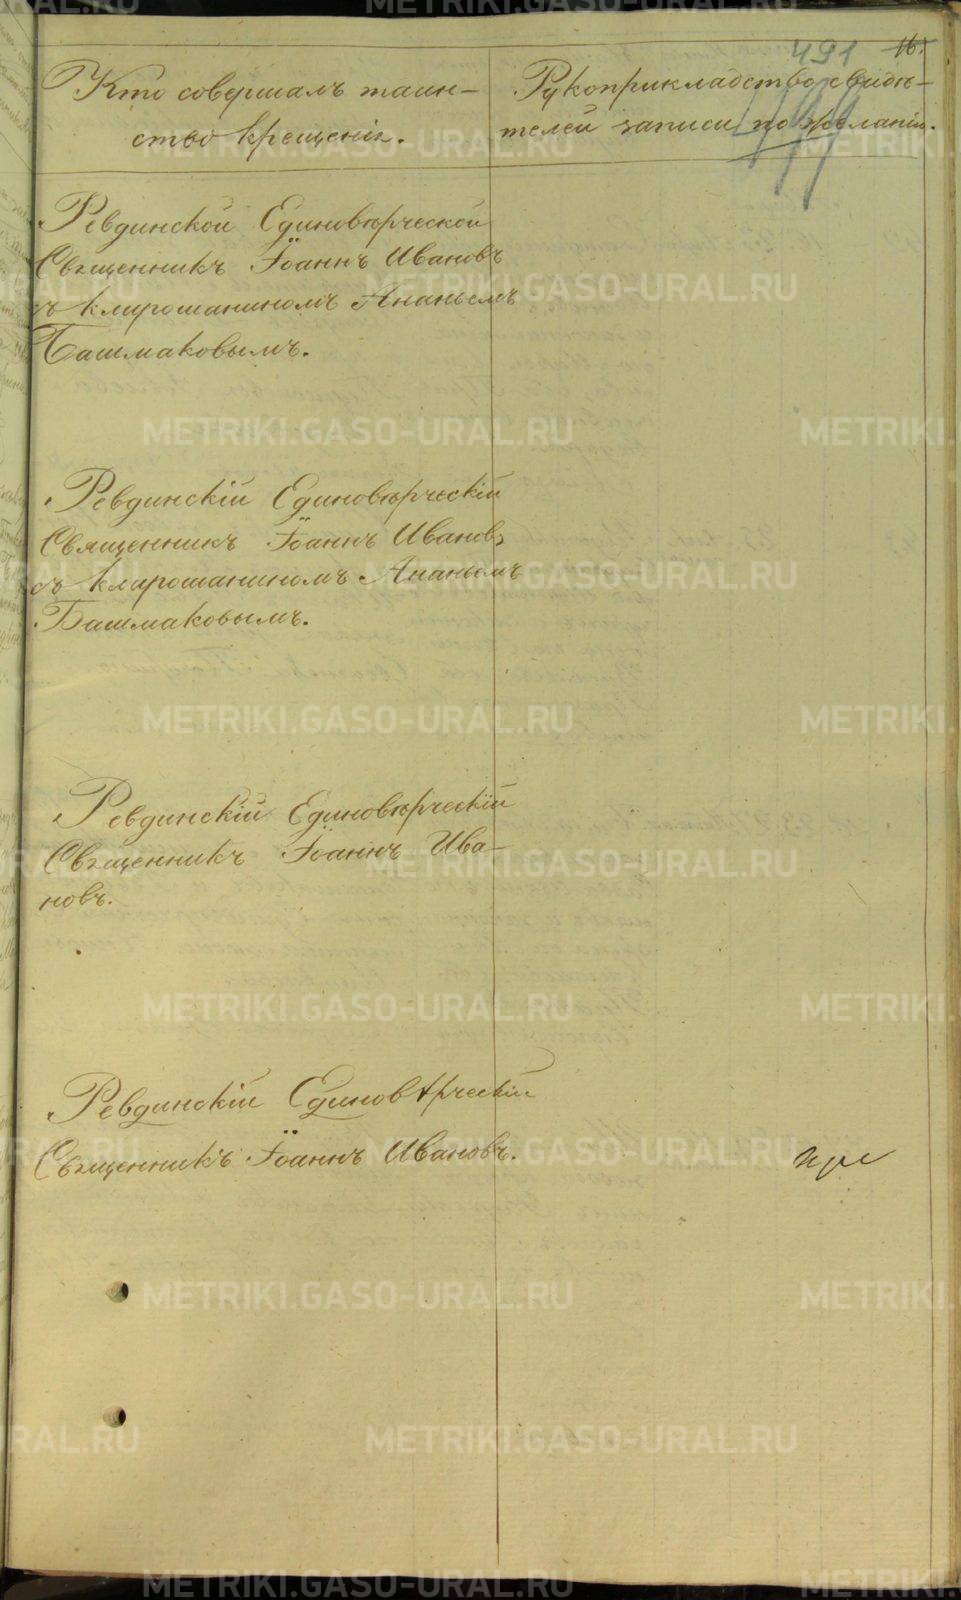 491 16.
Кто совершалъ таин-
ство крещенія.
Рукоприкладство свидѣ-
телей записи по желанію.
Ревдинской Единовѣрческой
Священникъ Іоаннъ Ивановъ
съ клирошаниномъ Ананьемъ
Башмаковымъ.
Ревдинскій Единовѣрческій
Священникъ Іоаннъ Ивановъ
съ клирошаниномъ Ананьемъ
Башмаковымъ.
Ревдинскій Единовѣрческій
Священникъ Іоаннъ Ива-
новъ.
Ревдинскій Единовѣрческій
Священникъ Іоаннъ Ивановъ.
METRIKI.GASO-URAL.RU